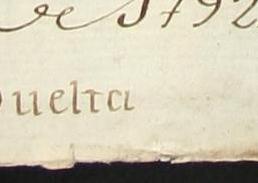 de 1792
Vuelta